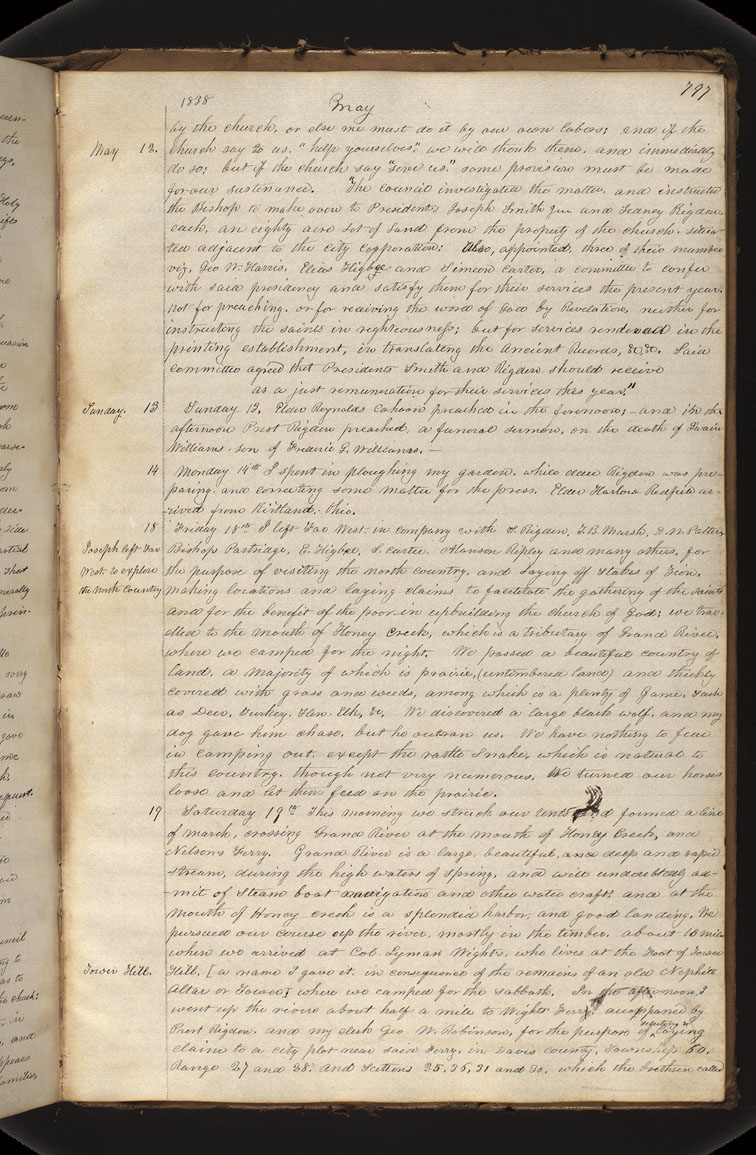 797
1838
May
by the church, or else we must do it by our own labors; and if the
May 12. church say to us, "help yourselves", we will thank them, and immediately
do so; but if the church say "serve us" some provision must be made
for our sustenance. The council investigated the matter, and instructed
the Bishop to make over to Presidents Joseph Smith Jun and Sidney Rigdon
each, an eighty acre lot of Land from the property of the church, situa-
ted adjacent to the city Corporation: Also, appointed, three of their number
viz, Geo W. Harris, Elias Higbee and Simeon Carter, a committee to confer
with said presidency and satisfy them for their services the present year;
not for preaching, or for receiving the word of God by Revelation, neither for
instructing the saints in righteousness; but for services rendered in the
printing establishment, in translating the ancient Records, &c &c. Said
committee agreed that Presidents Smith and Rigdon should receive
as a just remuneration for their services this year."
Sunday. 13 Sunday 13, Elder Reynolds Cahoon preached in the forenoon;—and in the
afternoon Prest Rigdon preached, a funeral sermon, on the death of Swain
Williams. son of Frederic G. Williams.—
14 Monday 14th I spent in ploughing my garden, while elder Rigdon was pre-
paring and correcting some matter for the press. Elder Harlow Redfield ar-
rived from Kirtland, Ohio.
18 Friday 18th I left Far West in company with S. Rigdon, T. B. Marsh, D. W. Patten
Joseph left Far Bishop Partridge, E. Higbee, S. Carter, Alanson Ripley and many others, for
West to explore the purpose of visiting the north country, and laying off stakes of Zion,
the North Country making locations and laying claims to facilitate the gathering of the saints
and for the benefit of the poor in upbuilding the church of God; we trav-
elled to the mouth of Honey Creek, which is a tributary of Grand River,
where we camped for the night. We passed a beautiful country of
land, a majority of which is prairie, (untimbered land) and thickly
covered with grass and weeds, among which is a plenty of Game, such
as Deer, Turkey, Hen. Elk, &c. We discovered a large black wolf, and my
dog gave him chase, but he outran us. We have nothing to fear
in camping out, except the rattle snake, which is natural to
this country, though not very numerous. We turned our horses
loose and let them feed on the prairie.
19 Saturday 19th This morning we struck our tents and formed a line
of march, crossing Grand River at the mouth of Honey Creek, and
Nelson's Ferry. Grand River is a large, beautiful, and deep and rapid
stream, during the high waters of spring, and will undoubtedly ad-
mit of Steam boat navigation and other water craft: and at the
mouth of Honey creek is a splendid harbor, and good landing. We
pursued our course up the river, mostly in the timber, about 18 miles
when we arrived at Col. Lyman Wight's, who lives at the Foot of Tower
Tower Hill. Hill, [a name I gave it in consequence of the remains of an old Nephite
Altar or Tower] where we camped for the sabbath. In the after noon I
went up the river about half a mile to Wights Ferry, accompanied by
Prest Rigdon, and my clerk Geo W. Robinson, for the purpose of selecting & laying
claim to a city plot near said Ferry, in Davis county, Township 60,
Range 27 and 28, and Sections 25, 36, 31 and 30, which the brethren called